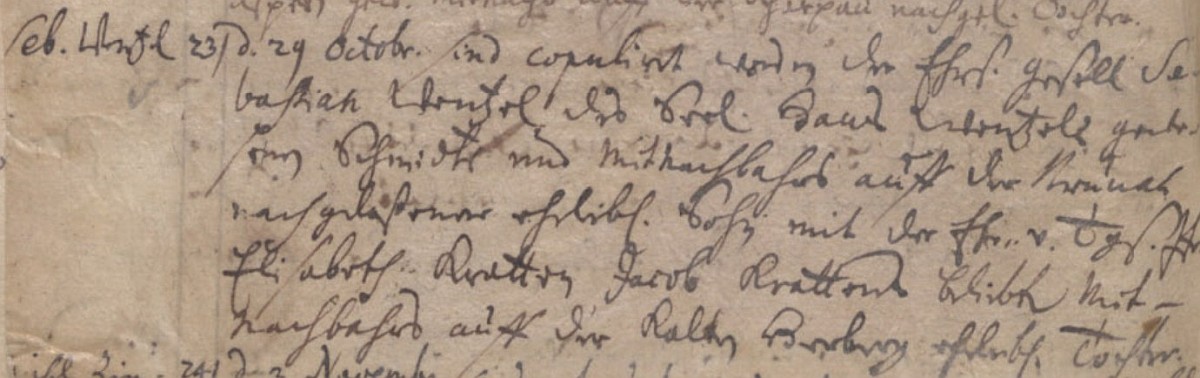 nachgel. Tochter.
Seb. Wentzel 23) d. 29 Octobr. sind copulirt worden der Ehrs. gesell Se-
bastian Wentzel des Seel. Hans Wentzels gewe-
senen Schmidts und Mitnachbahrs auff der
nachgelaßener ehelibl. Sohn mit der Ehr. v. Tgs. Jfr
Elisabeth Kratten Jacob Krattens beliebten Mit-
Nachbahrs auff der Kalten Herberg ehelibl. Tochter.
24) d. 3 Novembr.